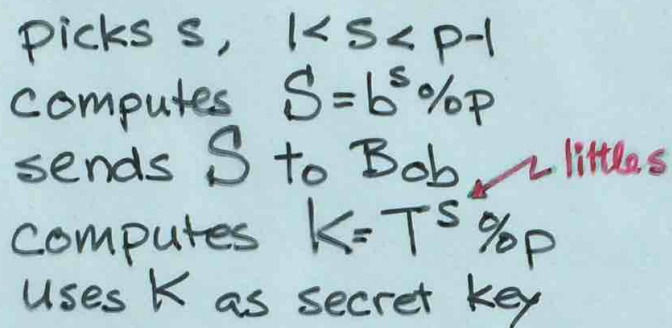 picks s, 1<s<p-1
computes S=b^s%p
sends S to Bob
little s
computes K=T^s%p
uses K as secret key